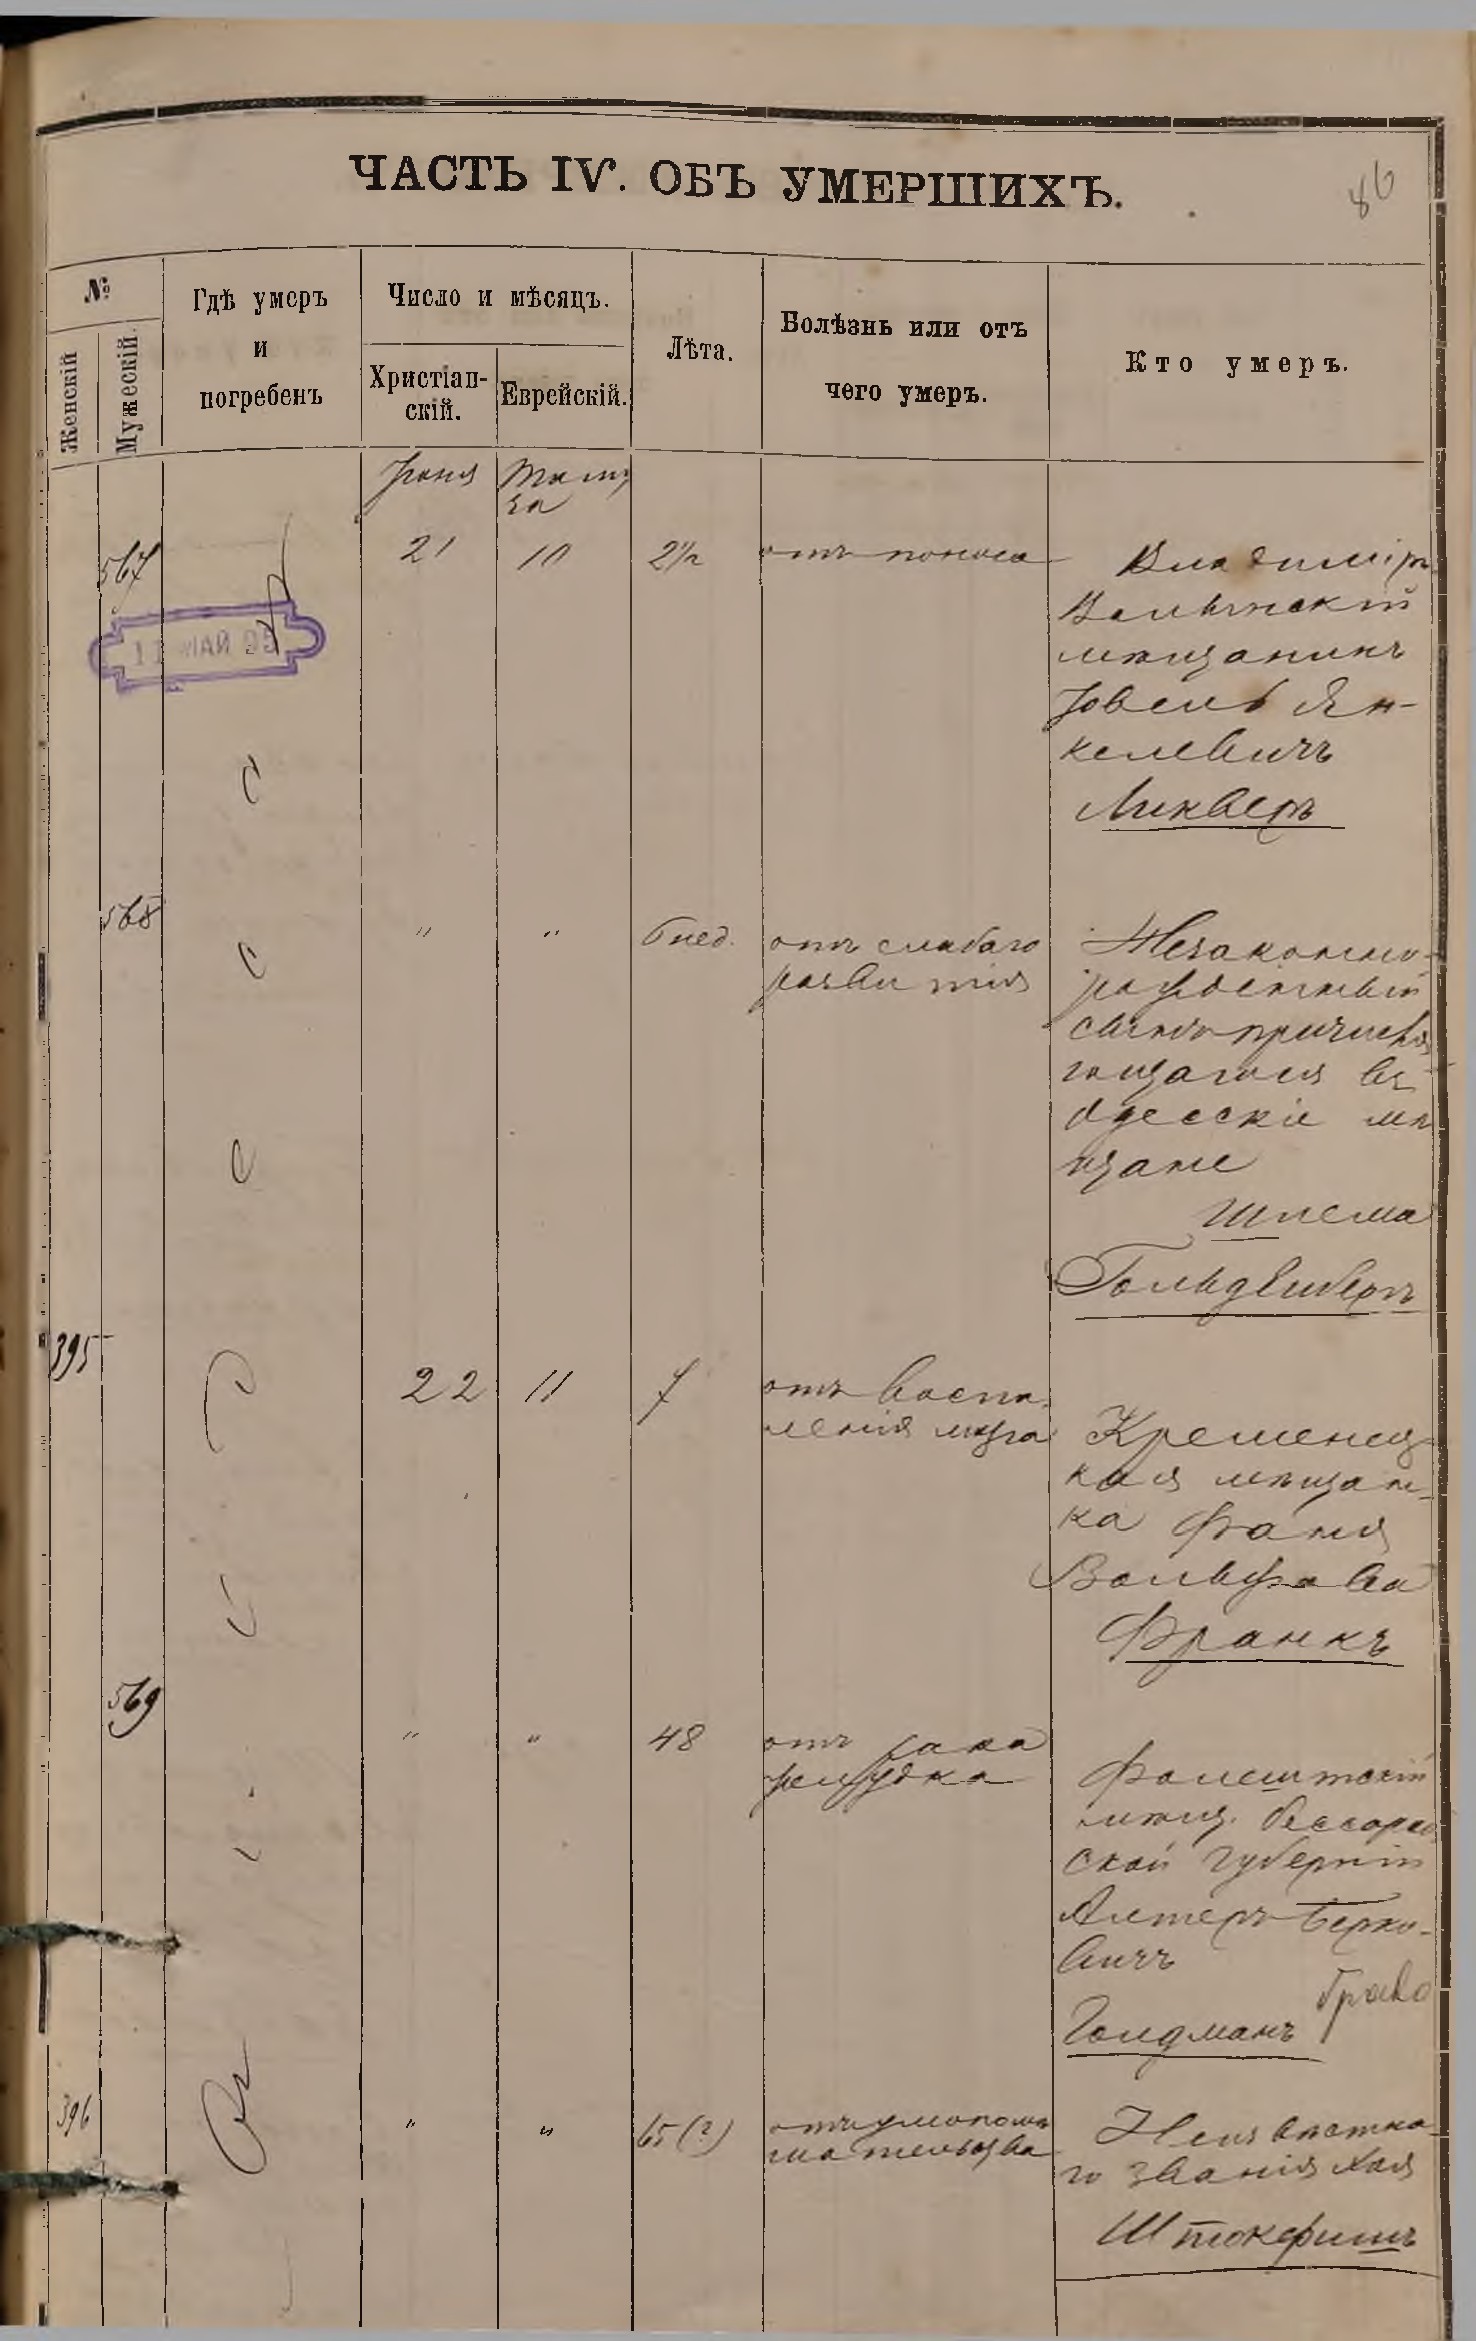 ЧАСТЬ IV. ОБЪ УМЕРШИХЪ.
86
№
Женскій
Мужескій
Гдѣ умеръ
и
погребенъ
Число и мѣсяцъ.
Христіан-
скій.
Еврейскій.
Лѣта.
Болѣзнь или отъ
чего умеръ.
Кто умеръ.
Іюня
Таму
за
567
21
10
2½
отъ поноса
Владимиръ
Волынскій
мѣщанинъ
Іовель Ян-
келевичъ
Ликверъ
11 МАЙ 95
568
"
"
6 нед.
отъ слабаго
развитія
Незаконно-
рожденный
сынъ причисля
ющагося въ
Одесскіе мѣ
щане
Шлема
Гольдвиберъ
395
22
11
7
отъ воспа
ленія мозга
Кременец
кая мѣщан-
ка Фаня
Вольфова
Франкъ
569
"
"
48
отъ рака
желудка
Фалештскій
мѣщ. Бессараб
ской губерніи
Алтеръ Берко-
вичъ
Голдманъ
396
"
"
65 (?)
отъ умопомѣ
шательства
Неизвѣстна-
го званія Хая
Штокфишъ